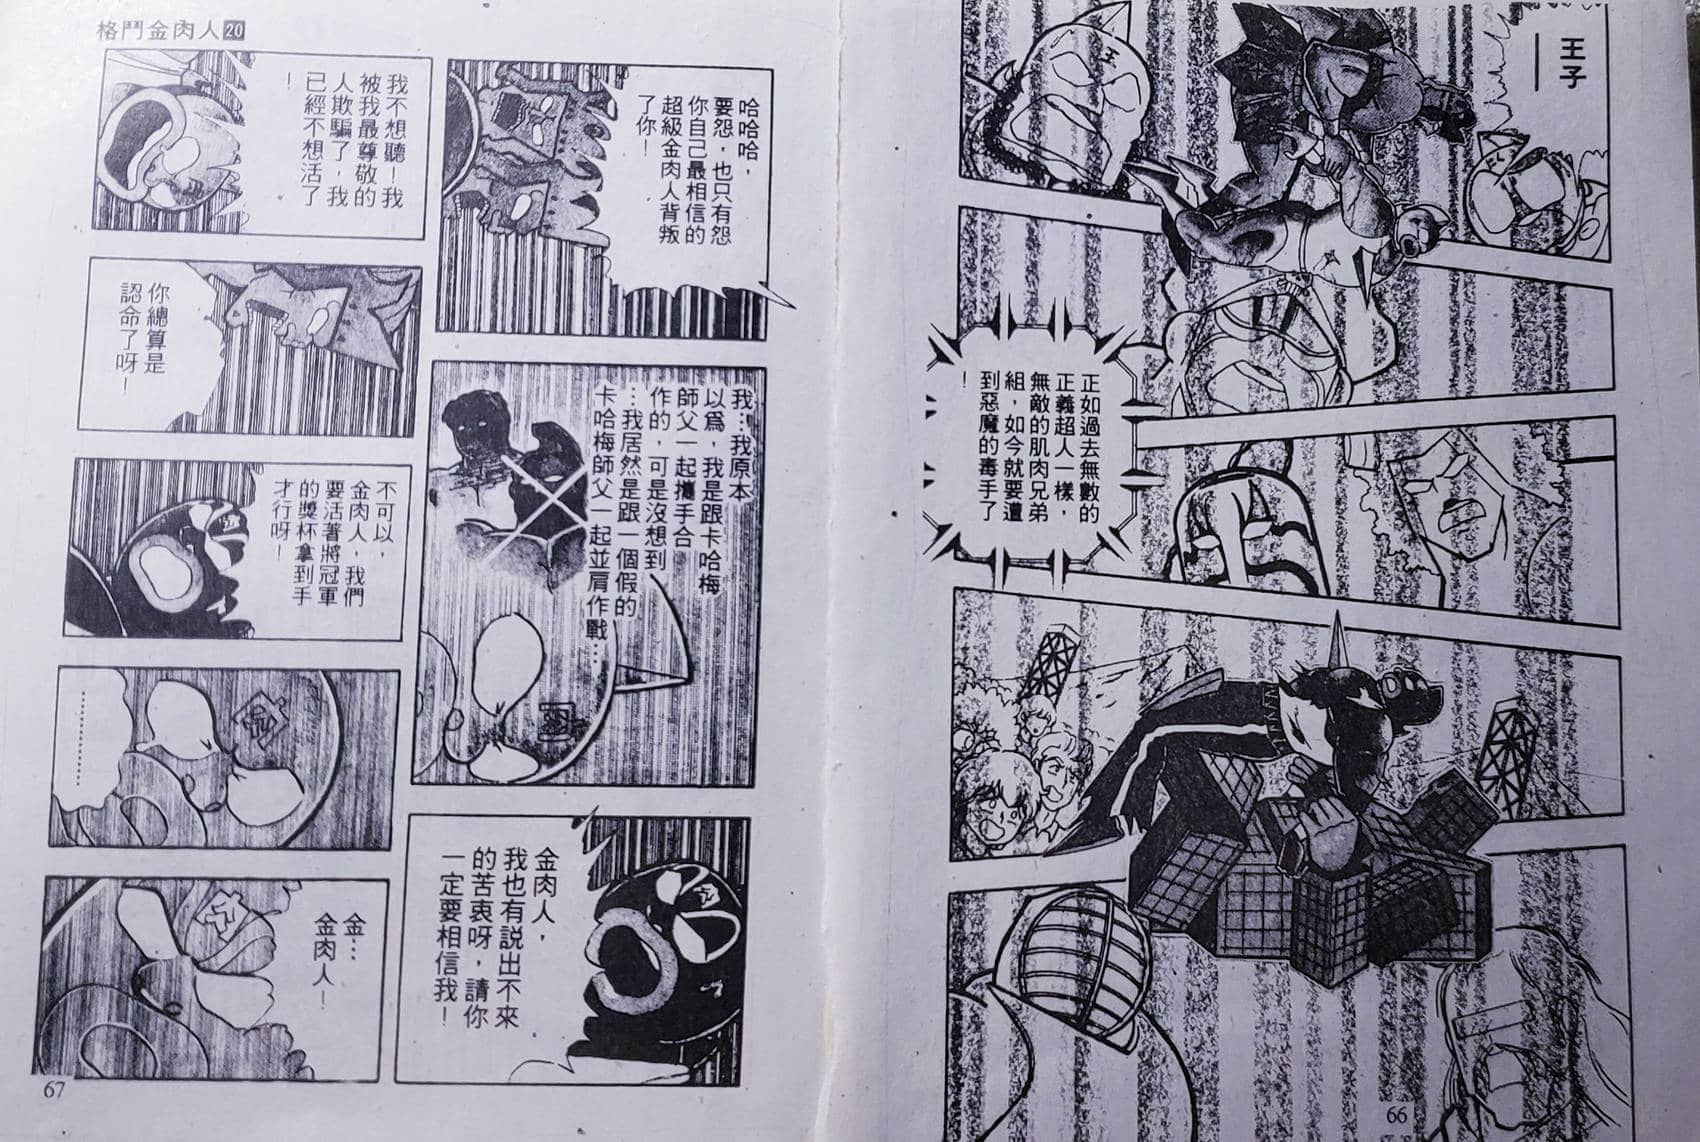 王子
——
正如過去無數的
正義超人一樣，
無敵的肌肉兄弟
組，如今就要遭
到惡魔的毒手了
！
66
格鬥金肉人20
哈哈哈，
要怨，也只有怨
你自己最相信的
超級金肉人背叛
了你！
我…我原本
以爲，我是跟卡哈梅
師父一起攜手合
作的，可是沒想到
…我居然是跟一個假的
卡哈梅師父一起並肩作戰…
金肉人，
我也有説出不來
的苦衷呀，請你
一定要相信我！
我不想聽！我
被我最尊敬的
人欺騙了，我
已經不想活了
！
你總算是
認命了呀！
不可以，
金肉人，我們
要活著將冠軍
的獎杯拿到手
才行呀！
………………
金…
金肉人！
67